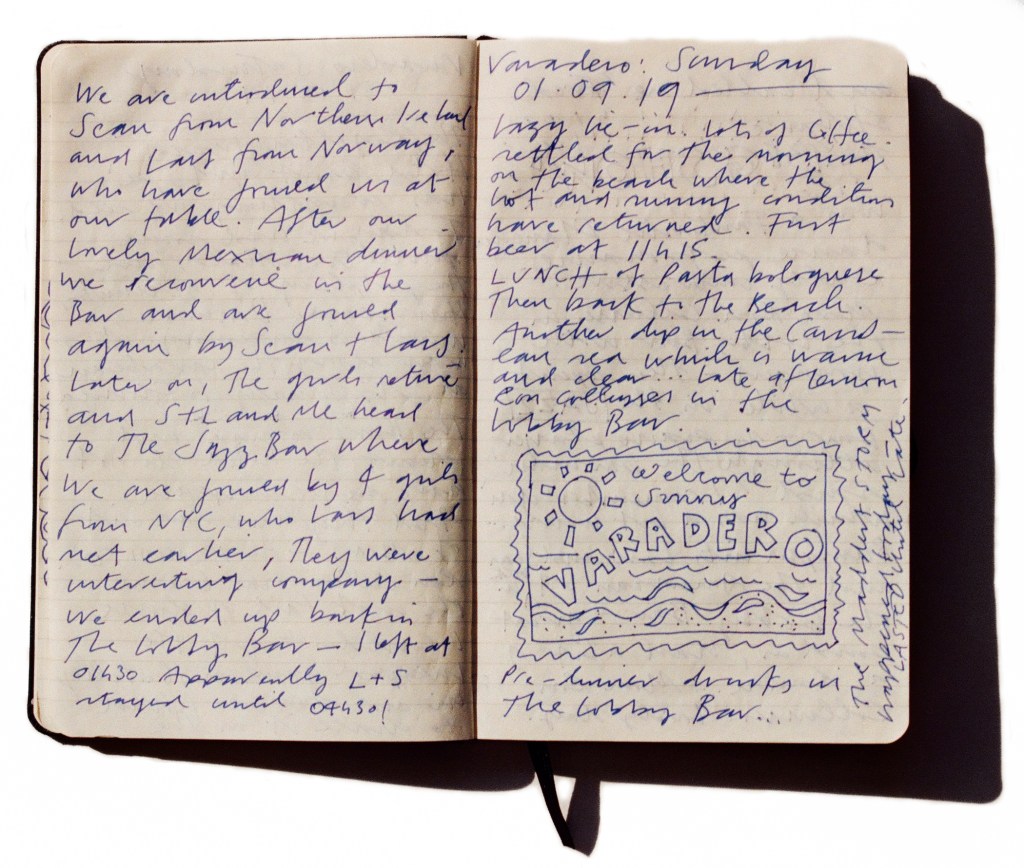 We are introduced to
Sean from Northern Ireland
and Lars from Norway,
who have joined us at
our table. After our
lovely Mexican dinner
we reconvene in the
Bar and are joined
again by Sean + Lars.
Later on, The girls retire
and STL and Me head
to The Jazz Bar where
We are joined by 4 girls
from NYC, who Lars had
met earlier, They were
interesting company –
We ended up back in
The Lobby Bar – I left at
01h30 Apparently L+S
stayed until 04h30!
Varadero: Sunday
01.09.19
Lazy lie-in. Lots of Coffee.
settled for the morning
on the beach where the
hot and sunny condition
have returned. First
beer at 11h15.
LUNCH of Pasta bolognese
Then back to the Beach.
Another dip in the Carib-
ean sea which is warm
and clear... Late afternoon
collapses in the
Lobby Bar.
Welcome to
Sunny
VARADERO
Pre-dinner drinks in
The Lobby Bar...
The Maddest STORM
happened today
LASTED until late.